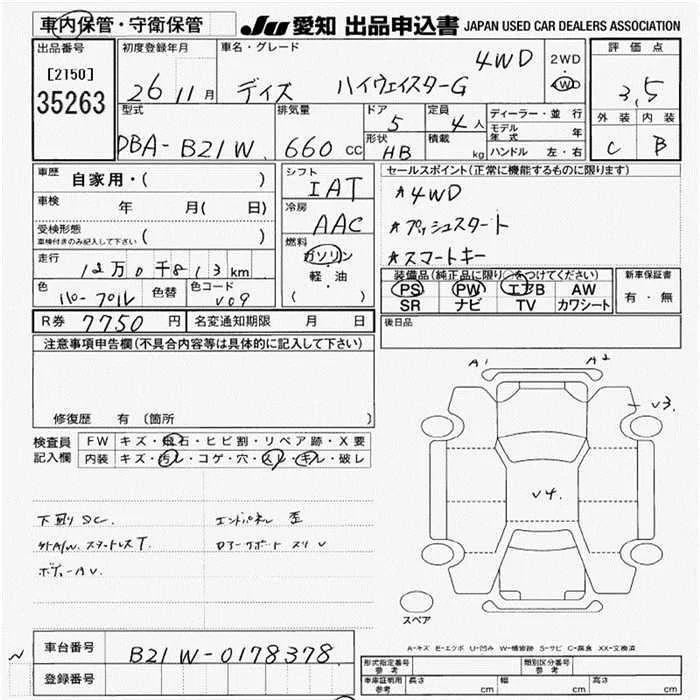 車内保管・守衛保管 JU 愛知 出品申込書 JAPAN USED CAR DEALERS ASSOCIATION
出品番号 [2150] 35263
初度登録年月 26 11月
車名・グレード デイズ ハイウェイスターG 4WD
2WD・4WD
評価点 3.5
外装 C 内装 B
型式 DBA-B21W
排気量 660 cc
ドア 5
形状 HB
定員 4人
積載 kg
ディーラー・並行
モデル年式 年
ハンドル 左・右
車歴 自家用・( )
車検 年 月( 日)
受検形態 車検付きのみ記入して下さい ( )
走行 12万0千813km
色 パープル 色替 色コード V09
シフト IAT
冷房 AAC
燃料 ガソリン 軽・油 ( )
セールスポイント(正常に機能するものに限ります)
★4WD
★プッシュスタート
★スマートキー
装備品(純正品に限り○をつけてください)
PS PW エアB AW
SR ナビ TV カワシート
新車保証書 有・無
R券 7750円 名変通知期限 月 日
後日品
注意事項申告欄(不具合内容等は具体的に記入して下さい)
修復歴 有 (箇所 )
検査員記入欄
FW キズ・飛石・ヒビ割・リペア跡・X要
内装 キズ・汚レ・コゲ・穴・スレ・キレ・破レ
下廻りSC.
エンドパネル 歪
外A/W. スタッドレスT.
ロアーサポート スリ V
ボディーAV.
A1 A2
V3.
V4.
スペア
A-キズ E-エクボ U-凹み W-補修跡 S-サビ C-腐食 XX-交換済
車台番号 B21W-0178378
登録番号
形式指定番号 参考
類別区分番号 参考
車庫証明用 参考 長さ cm 幅 cm 高さ cm